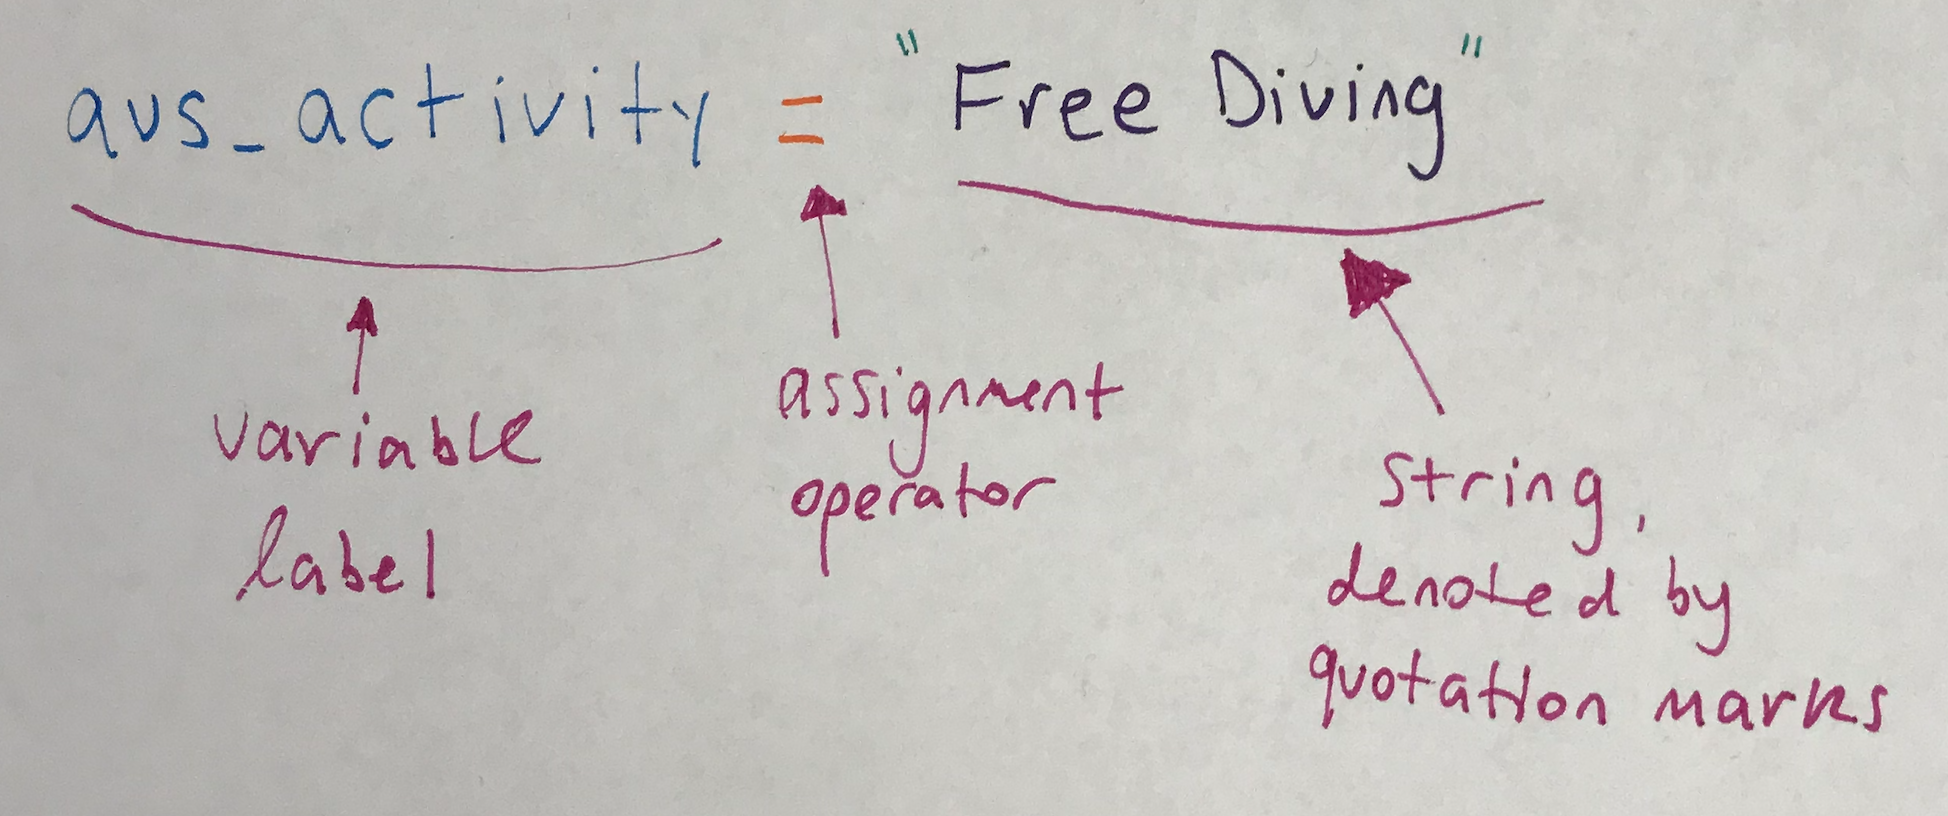 avs_activity = "Free Diving"
variable
label
assignment
operator
string,
denoted by
quotation marks